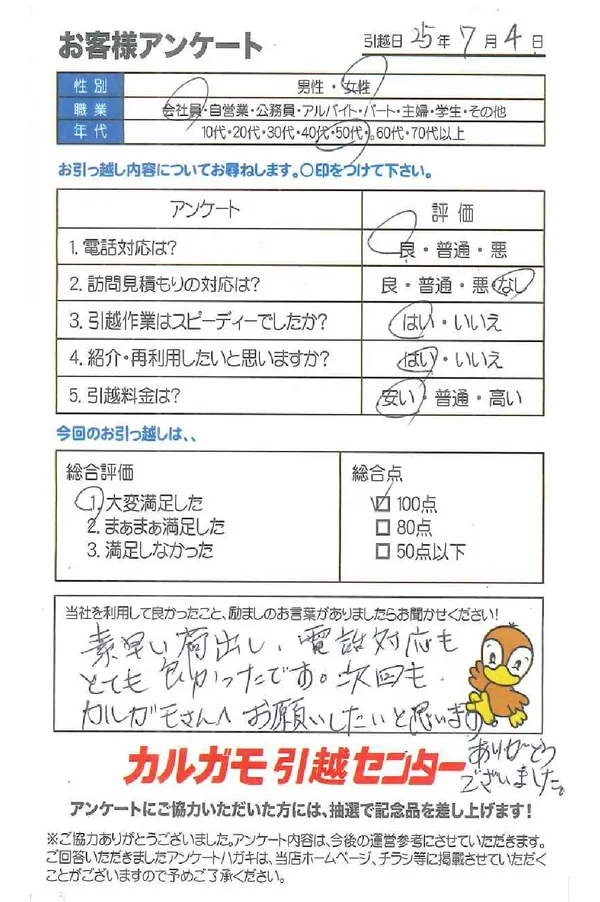 お客様アンケート
引越日 25年 7月 4日
性別 男性・女性
職業 会社員・自営業・公務員・アルバイト・パート・主婦・学生・その他
年代 10代・20代・30代・40代・50代・60代・70代以上
お引っ越し内容についてお尋ねします。〇印をつけて下さい。
アンケート 評価
1. 電話対応は? 良・普通・悪
2. 訪問見積もりの対応は? 良・普通・悪・なし
3. 引越作業はスピーディーでしたか? はい・いいえ
4. 紹介・再利用したいと思いますか? はい・いいえ
5. 引越料金は? 安い・普通・高い
今回のお引っ越しは、、
総合評価
1. 大変満足した
2. まぁまぁ満足した
3. 満足しなかった
総合点
100点
80点
50点以下
当社を利用して良かったこと、励ましのお言葉がありましたらお聞かせください!
素早い荷出し、電話対応も
とても良かったです。次回も
カルガモさんへお願いしたいと思います。
ありがとう
ございました。
カルガモ引越センター
アンケートにご協力いただいた方には、抽選で記念品を差し上げます!
※ご協力ありがとうございました。アンケート内容は、今後の運営参考にさせていただきます。
ご回答いただきましたアンケートハガキは、当店ホームページ、チラシ等に掲載させていただく
ことがございますので予めご了承ください。